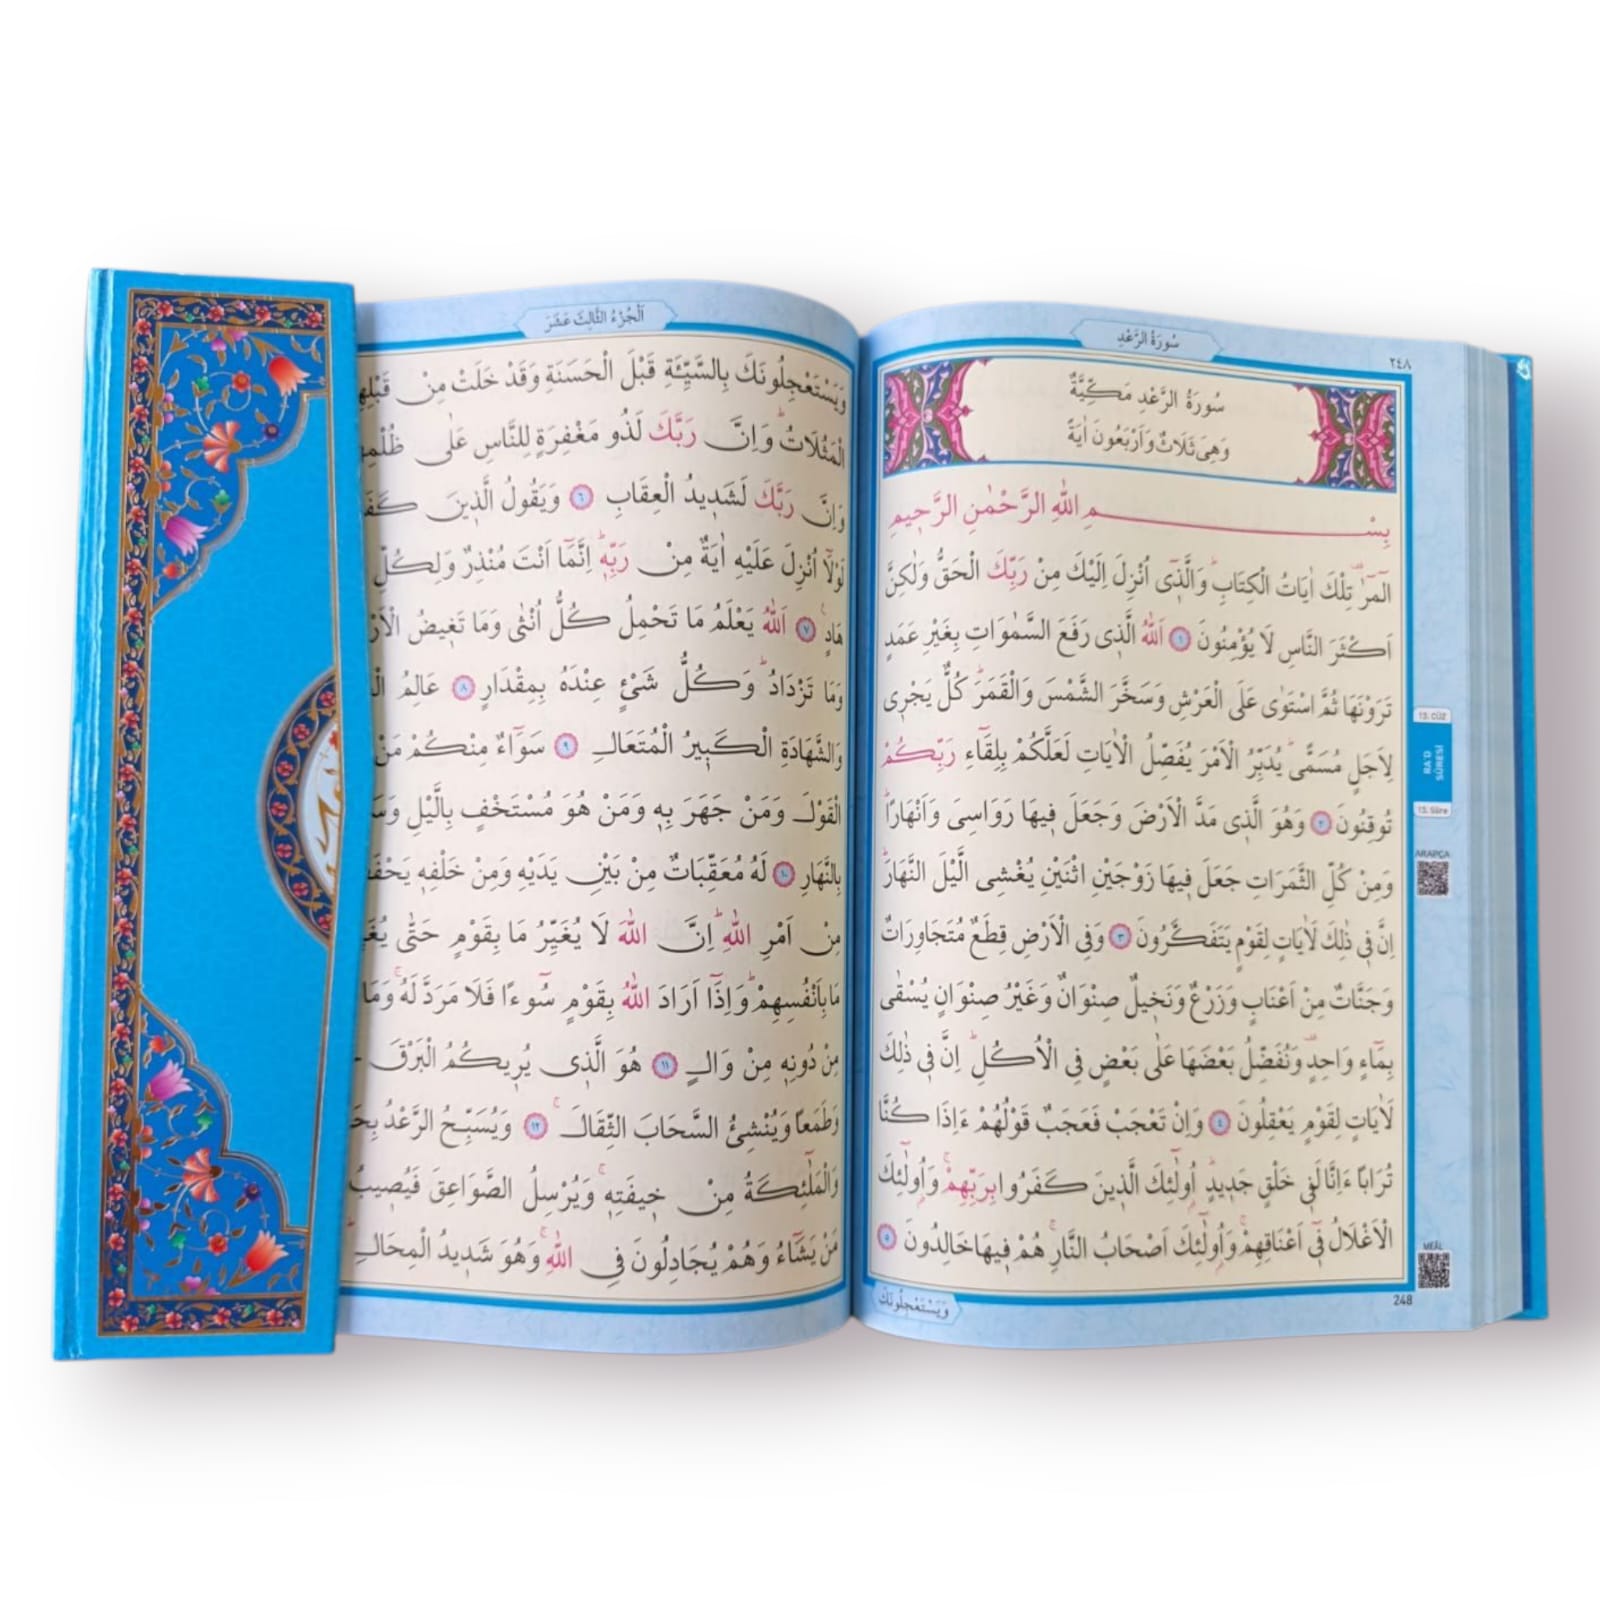 سُورَةُ الرَّعْدِ
٢٤٨
سُورَةُ الرَّعْدِ مَكِّيَّةٌ
وَهِىَ ثَلَاثٌ وَاَرْبَعُونَ اٰيَةً
بِسْمِ اللّٰهِ الرَّحْمٰنِ الرَّحِيمِ
الٓمٓرٰ تِلْكَ اٰيَاتُ الْكِتَابِ وَالَّذٖٓى اُنْزِلَ اِلَيْكَ مِنْ رَبِّكَ الْحَقُّ وَلٰكِنَّ
اَكْثَرَ النَّاسِ لَا يُؤْمِنُونَ ١ اَللّٰهُ الَّذٖى رَفَعَ السَّمٰوَاتِ بِغَيْرِ عَمَدٍ
تَرَوْنَهَا ثُمَّ اسْتَوٰى عَلَى الْعَرْشِ وَسَخَّرَ الشَّمْسَ وَالْقَمَرَ كُلٌّ يَجْرٖى
لِاَجَلٍ مُسَمًّى يُدَبِّرُ الْاَمْرَ يُفَصِّلُ الْاٰيَاتِ لَعَلَّكُمْ بِلِقَٓاءِ رَبِّكُمْ
تُوقِنُونَ ٢ وَهُوَ الَّذٖى مَدَّ الْاَرْضَ وَجَعَلَ فٖيهَا رَوَاسِىَ وَاَنْهَارًا
وَمِنْ كُلِّ الثَّمَرَاتِ جَعَلَ فٖيهَا زَوْجَيْنِ اثْنَيْنِ يُغْشِى الَّيْلَ النَّهَارَ
اِنَّ فٖى ذٰلِكَ لَاٰيَاتٍ لِقَوْمٍ يَتَفَكَّرُونَ ٣ وَفِى الْاَرْضِ قِطَعٌ مُتَجَاوِرَاتٌ
وَجَنَّاتٌ مِنْ اَعْنَابٍ وَزَرْعٌ وَنَخٖيلٌ صِنْوَانٌ وَغَيْرُ صِنْوَانٍ يُسْقٰى
بِمَٓاءٍ وَاحِدٍ وَنُفَضِّلُ بَعْضَهَا عَلٰى بَعْضٍ فِى الْاُكُلِ اِنَّ فٖى ذٰلِكَ
لَاٰيَاتٍ لِقَوْمٍ يَعْقِلُونَ ٤ وَاِنْ تَعْجَبْ فَعَجَبٌ قَوْلُهُمْ ءَاِذَا كُنَّا
تُرَابًا ءَاِنَّا لَفٖى خَلْقٍ جَدٖيدٍ اُو۬لٰٓئِكَ الَّذٖينَ كَفَرُوا بِرَبِّهِمْ وَاُو۬لٰٓئِكَ
الْاَغْلَالُ فٖٓى اَعْنَاقِهِمْ وَاُو۬لٰٓئِكَ اَصْحَابُ النَّارِ هُمْ فٖيهَا خَالِدُونَ ٥
وَيَسْتَعْجِلُونَكَ
248
13. CÜZ
RA'D
SÛRESİ
13. Sûre
ARAPÇA
MEÂL
اَلْجُزْءُ الثَّالِثَ عَشَرَ
وَيَسْتَعْجِلُونَكَ بِالسَّيِّئَةِ قَبْلَ الْحَسَنَةِ وَقَدْ خَلَتْ مِنْ
الْمَثُلَاتُ وَاِنَّ رَبَّكَ لَذُو مَغْفِرَةٍ لِلنَّاسِ عَلٰى
وَاِنَّ رَبَّكَ لَشَدٖيدُ الْعِقَابِ ٦ وَيَقُولُ الَّذٖينَ
لَوْلَٓا اُنْزِلَ عَلَيْهِ اٰيَةٌ مِنْ رَبِّهٖ اِنَّمَٓا اَنْتَ مُنْذِرٌ وَلِكُلِّ
هَادٍ ٧ اَللّٰهُ يَعْلَمُ مَا تَحْمِلُ كُلُّ اُنْثٰى وَمَا تَغٖيضُ
وَمَا تَزْدَادُ وَكُلُّ شَىْءٍ عِنْدَهُ بِمِقْدَارٍ ٨ عَالِمُ
وَالشَّهَادَةِ الْكَبٖيرُ الْمُتَعَالِ ٩ سَوَٓاءٌ مِنْكُمْ مَنْ
الْقَوْلَ وَمَنْ جَهَرَ بِهٖ وَمَنْ هُوَ مُسْتَخْفٍ بِالَّيْلِ
بِالنَّهَارِ ١٠ لَهُ مُعَقِّبَاتٌ مِنْ بَيْنِ يَدَيْهِ وَمِنْ خَلْفِهٖ
مِنْ اَمْرِ اللّٰهِ اِنَّ اللّٰهَ لَا يُغَيِّرُ مَا بِقَوْمٍ حَتّٰى
مَا بِاَنْفُسِهِمْ وَاِذَٓا اَرَادَ اللّٰهُ بِقَوْمٍ سُٓوءًا فَلَا مَرَدَّ لَهُ وَمَا
مِنْ دُونِهٖ مِنْ وَالٍ ١١ هُوَ الَّذٖى يُرٖيكُمُ الْبَرْقَ
وَطَمَعًا وَيُنْشِئُ السَّحَابَ الثِّقَالَ ١٢ وَيُسَبِّحُ الرَّعْدُ
وَالْمَلٰٓئِكَةُ مِنْ خٖيفَتِهٖ وَيُرْسِلُ الصَّوَاعِقَ فَيُصٖيبُ
مَنْ يَشَٓاءُ وَهُمْ يُجَادِلُونَ فِى اللّٰهِ وَهُوَ شَدٖيدُ الْمِحَالِ